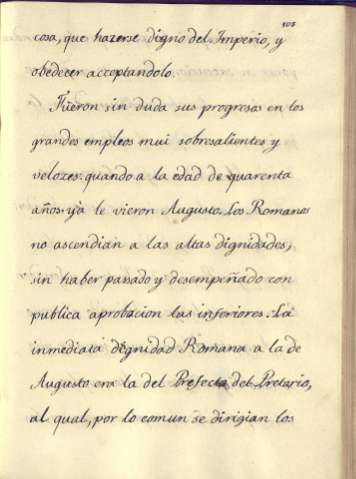 102
cosa, que hazerse digno del Imperio, y
obedecer acceptandolo.
Fueron sin duda sus progresos en los
grandes empleos mui sobresalientes y
velozes. quando a la edad de quarenta
años ya le vieron Augusto. Los Romanos
no ascendian a las altas dignidades,
sin haber passado y desempeñado con
publica aprobacion las inferiores. La
inmediata dignidad Romana a la de
Augusto era la del Prefecto del Pretorio,
al qual, por lo comun se dirigian los